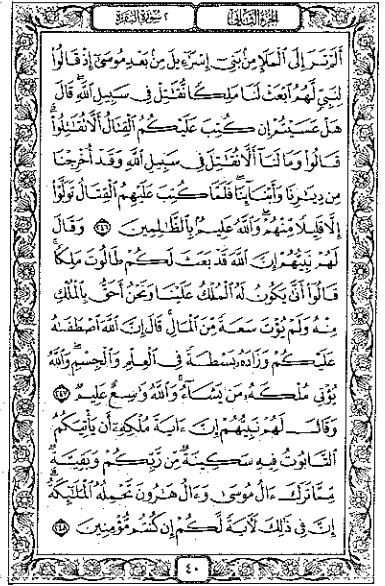 الجزء الثاني
٢ سورة البقرة
أَلَمْ تَرَ إِلَى الْمَلَإِ مِنْ بَنِي إِسْرَٰٓءِيلَ مِنْ بَعْدِ مُوسَىٰٓ إِذْ قَالُوا۟
لِنَبِيٍّ لَهُمُ ابْعَثْ لَنَا مَلِكًا نُقَٰتِلْ فِي سَبِيلِ اللَّهِ ۖ قَالَ
هَلْ عَسَيْتُمْ إِنْ كُتِبَ عَلَيْكُمُ الْقِتَالُ أَلَّا تُقَٰتِلُوا۟ ۖ
قَالُوا۟ وَمَا لَنَآ أَلَّا نُقَٰتِلَ فِي سَبِيلِ اللَّهِ وَقَدْ أُخْرِجْنَا
مِنْ دِيَٰرِنَا وَأَبْنَآئِنَا ۖ فَلَمَّا كُتِبَ عَلَيْهِمُ الْقِتَالُ تَوَلَّوْا۟
إِلَّا قَلِيلًا مِنْهُمْ ۗ وَاللَّهُ عَلِيمٌ بِالظَّٰلِمِينَ ٢٤٦ وَقَالَ
لَهُمْ نَبِيُّهُمْ إِنَّ اللَّهَ قَدْ بَعَثَ لَكُمْ طَالُوتَ مَلِكًا ۚ
قَالُوٓا۟ أَنَّىٰ يَكُونُ لَهُ الْمُلْكُ عَلَيْنَا وَنَحْنُ أَحَقُّ بِالْمُلْكِ
مِنْهُ وَلَمْ يُؤْتَ سَعَةً مِنَ الْمَالِ ۚ قَالَ إِنَّ اللَّهَ اصْطَفَىٰهُ
عَلَيْكُمْ وَزَادَهُۥ بَسْطَةً فِي الْعِلْمِ وَالْجِسْمِ ۖ وَاللَّهُ
يُؤْتِي مُلْكَهُۥ مَنْ يَشَآءُ ۚ وَاللَّهُ وَٰسِعٌ عَلِيمٌ ٢٤٧
وَقَالَ لَهُمْ نَبِيُّهُمْ إِنَّ ءَايَةَ مُلْكِهِۦٓ أَنْ يَأْتِيَكُمُ
التَّابُوتُ فِيهِ سَكِينَةٌ مِنْ رَبِّكُمْ وَبَقِيَّةٌ
مِمَّا تَرَكَ ءَالُ مُوسَىٰ وَءَالُ هَٰرُونَ تَحْمِلُهُ الْمَلَٰٓئِكَةُ ۚ
إِنَّ فِي ذَٰلِكَ لَءَايَةً لَكُمْ إِنْ كُنْتُمْ مُؤْمِنِينَ ٢٤٨
٤٠